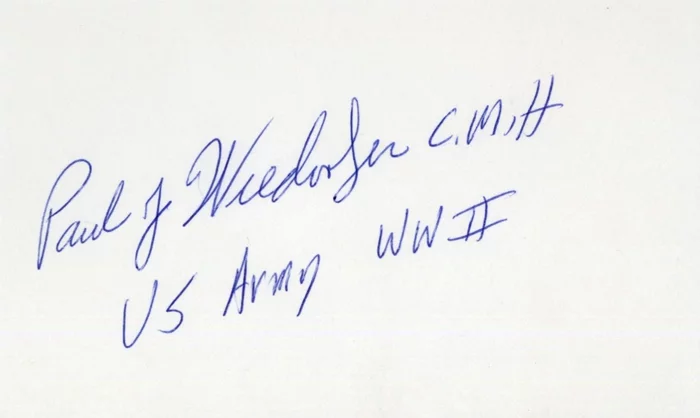 Paul J Wiedorfer C.M.H
US Army WWII